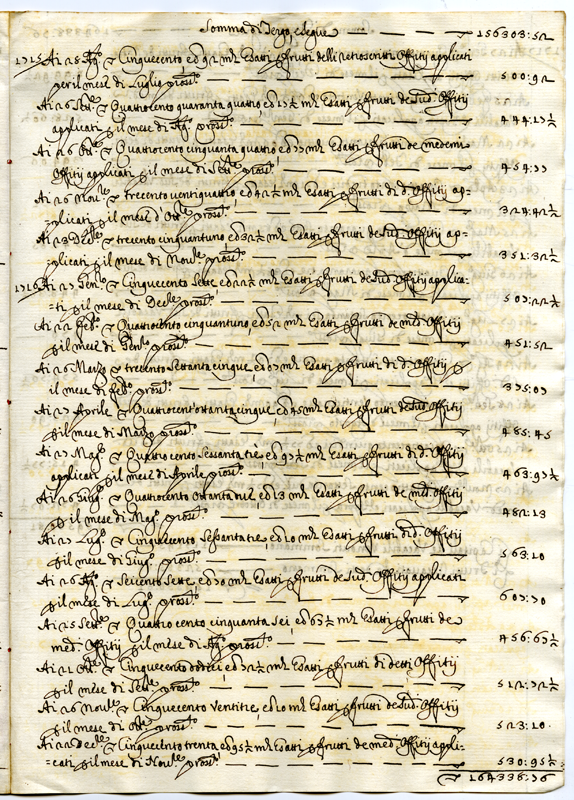 Somma di Tergo, e segue — 156303:52
1715 Ai 28 Ago. ▽ Cinquecento ed 92 mta Esatti p frutti delli retroscritti Offitij applicati
per il mese di Luglio pross.o — 500:92
Ai 26 Sett.e ▽ Quattrocento quaranta quattro, ed 17½ mta Esatti p frutti de Sud.i Offitij
applicati p il mese di Ag.o pross.o — 444:17½
Ai 26 Ott.e ▽ Quattrocento cinquanta quattro ed 77 mta Esatti p frutti de medemi
Offitij applicati p il mese di Sett.e pross.o — 454:77
Ai 26 Nov.e ▽ trecento ventiquattro, ed 42½ mta Esatti p frutti di d.i Offitij ap=
=plicati p il mese d'Ott.e pross.o — 324:42½
Ai 23 Dec.e ▽ trecento cinquantuno ed 32½ mta Esatti p frutti de Sud.i Offitij ap=
=plicati p il mese di Nov.e pross.o — 351:32½
1716 Ai 27 Gen.o ▽ Cinquecento Sette, ed 22½ mta Esatti p frutti de Sud.i Offitij applica=
=ti p il mese di Dec.e pross.o — 507:22½
Ai 22 Feb.o ▽ Quattrocento cinquantuno, ed 52 mta Esatti p frutti de med.i Offitij
p il mese di Gen.o pross.o — 451:52
Ai 26 Marzo ▽ trecento Settanta cinque, ed 07 mta Esatti p frutti di d.i Offitij
p il mese di Feb.o pross.o — 375:07
Ai 27 Aprile ▽ Quattrocent'ottanta cinque, ed 45 mta Esatti p frutti de Sud.i Offitij
p il mese di Marzo pross.o — 485:45
Ai 27 Mag.o ▽ Quattro cento Sessanta trè, ed 97½ mta Esatti p frutti di d.i Offitij
applicati p il mese di Aprile pross.o — 463:97½
Ai 26 Giug.o ▽ Quattrocento Ottanta due, ed 13 mta Esatti p frutti de med.i Offitij
p il mese di Mag.o pross.o — 482:13
Ai 27 Lug.o ▽ Cinquecento Sessanta tre, ed 10 mta Esatti p frutti di d.i Offitij
p il mese di Giug.o pross.o — 563:10
Ai 26 Ag.o ▽ Seicento Sette, ed 70 mta Esatti p frutti de Sud.i Offitij applicati
p il mese di Lug.o pross.o — 607:70
Ai 25 Sett.e ▽ Quattro cento cinquanta sei, ed 63½ mta Esatti p frutti de
med.i Offitij p il mese di Ag.o pross.o — 456:63½
Ai 21 Ott.e ▽ Cinquecento dodeci, ed 72½ mta Esatti p frutti di detti Offitij
p il mese di Sett.e pross.o — 512:72½
Ai 26 Nov.e ▽ Cinquecento Ventitre, ed 10 mta Esatti p frutti de Sud.i Offitij
p il mese di Ott.e pross.o — 523:10
Ai 22 Dec.e ▽ Cinquecento trenta, ed 95½ mta Esatti p frutti de med.i Offitij appli=
=cati p il mese di Nov.e pross.o — 530:95½
▽ 164336:76